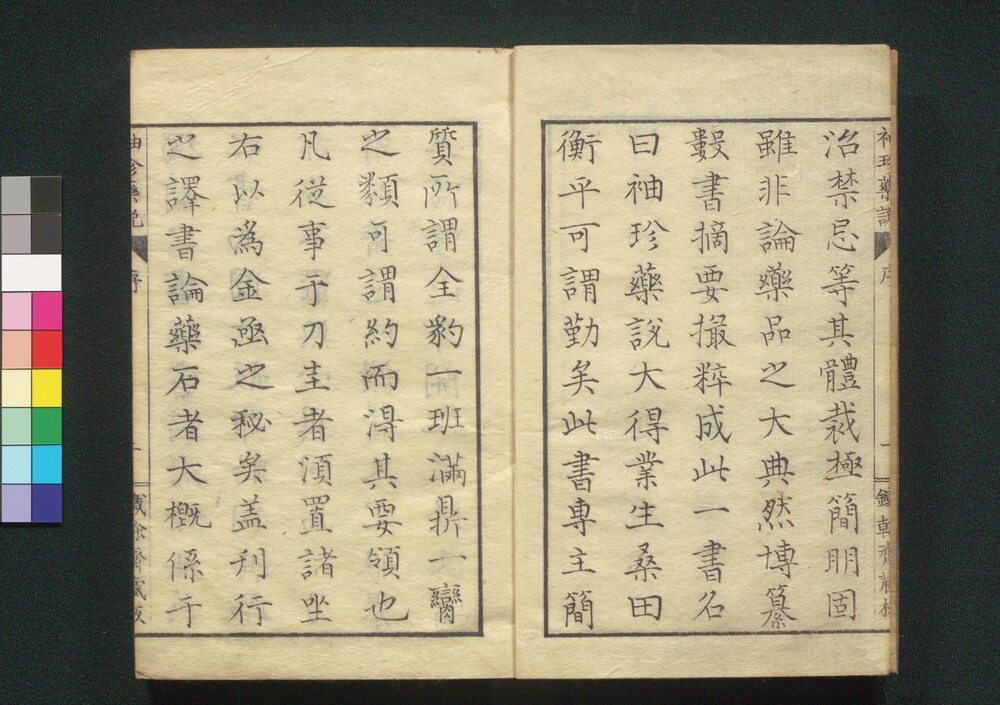 治禁忌等其體裁極簡明固
雖非論藥品之大典然博纂
數書摘要撮粹成此一書名
曰袖珍藥説大得業生桑田
衡平可謂勤矣此書專主簡
質所謂全豹一班滿鼎一臠
之類可謂約而得其要領也
凡從事于刀圭者須置諸坐
右以為金匱之秘矣盖刊行
之譯書論藥石者大概係于
袖珍藥説
序
一